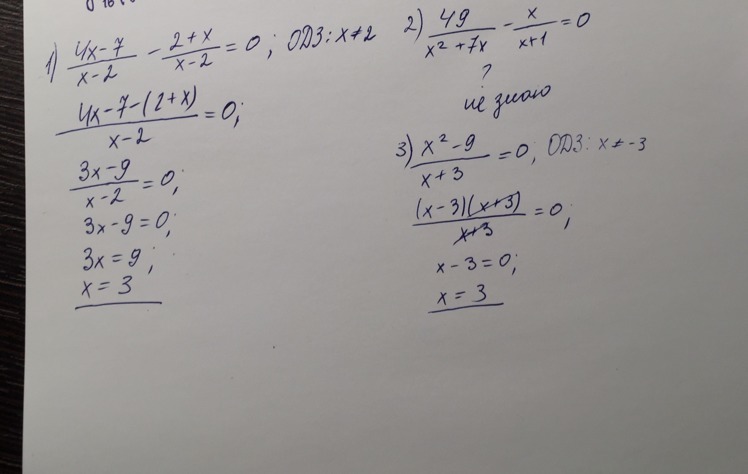 1) (4x-7)/(x-2) - (2+x)/(x-2) = 0; ОДЗ: x≠2
(4x-7-(2+x))/(x-2) = 0;
(3x-9)/(x-2) = 0;
3x-9=0;
3x=9;
x=3
2) 49/(x²+7x) - x/(x+1) = 0
?
не знаю
3) (x²-9)/(x+3) = 0; ОДЗ: x≠-3
((x-3)(x+3))/(x+3) = 0;
x-3=0;
x=3